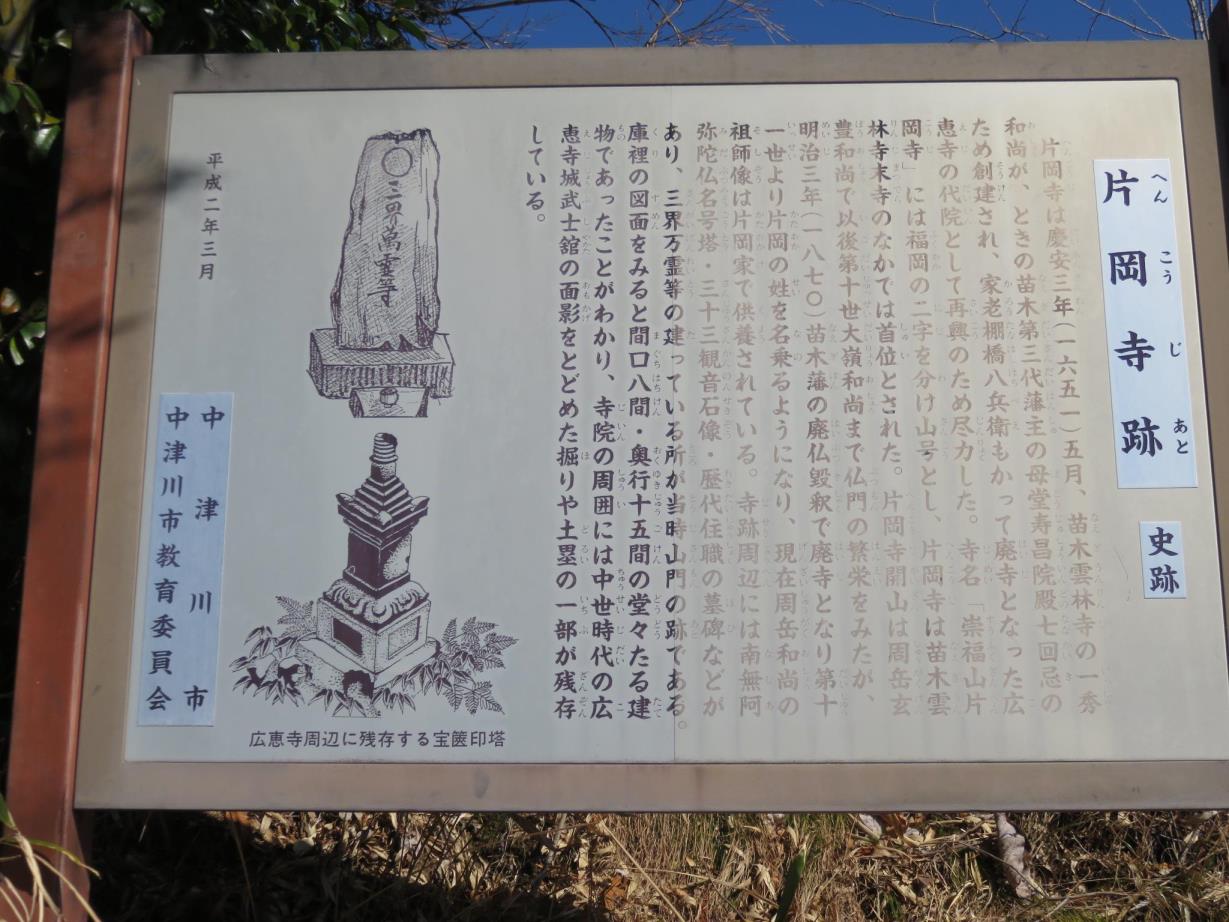 片岡寺跡
へんこうじあと
史跡
片岡寺は慶安三年(一六五一)五月、苗木雲林寺の一秀
和尚が、ときの苗木第三代藩主の母堂寿昌院殿七回忌の
ため創建され、家老棚橋八兵衛もかって廃寺となった広
恵寺の代院として再興のため尽力した。寺名「崇福山片
岡寺」には福岡の二字を分け山号とし、片岡寺は苗木雲
林寺末寺のなかでは首位とされた。片岡寺開山は周岳玄
豊和尚で以後第十世大嶺和尚まで仏門の繁栄をみたが、
明治三年(一八七〇)苗木藩の廃仏毀釈で廃寺となり第十
一世より片岡の姓を名乗るようになり、現在周岳和尚の
祖師像は片岡家で供養されている。寺跡周辺には南無阿
弥陀仏名号塔・三十三観音石像・歴代住職の墓碑などが
あり、三界万霊等の建っている所が当時山門の跡である。
庫裡の図面をみると間口八間・奥行十五間の堂々たる建
物であったことがわかり、寺院の周囲には中世時代の広
恵寺城武士舘の面影をとどめた掘りや土塁の一部が残存
している。
三界萬霊等
広恵寺周辺に残存する宝篋印塔
平成二年三月
中津川市
中津川市教育委員会